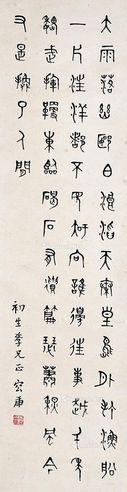 大雨落幽燕白浪滔天秦皇島外打漁船
一片汪洋都不見知向誰邊往事越千年
魏武揮鞭東臨碣石有遺篇蕭瑟秋風今
又是換了人間
初生李兄正